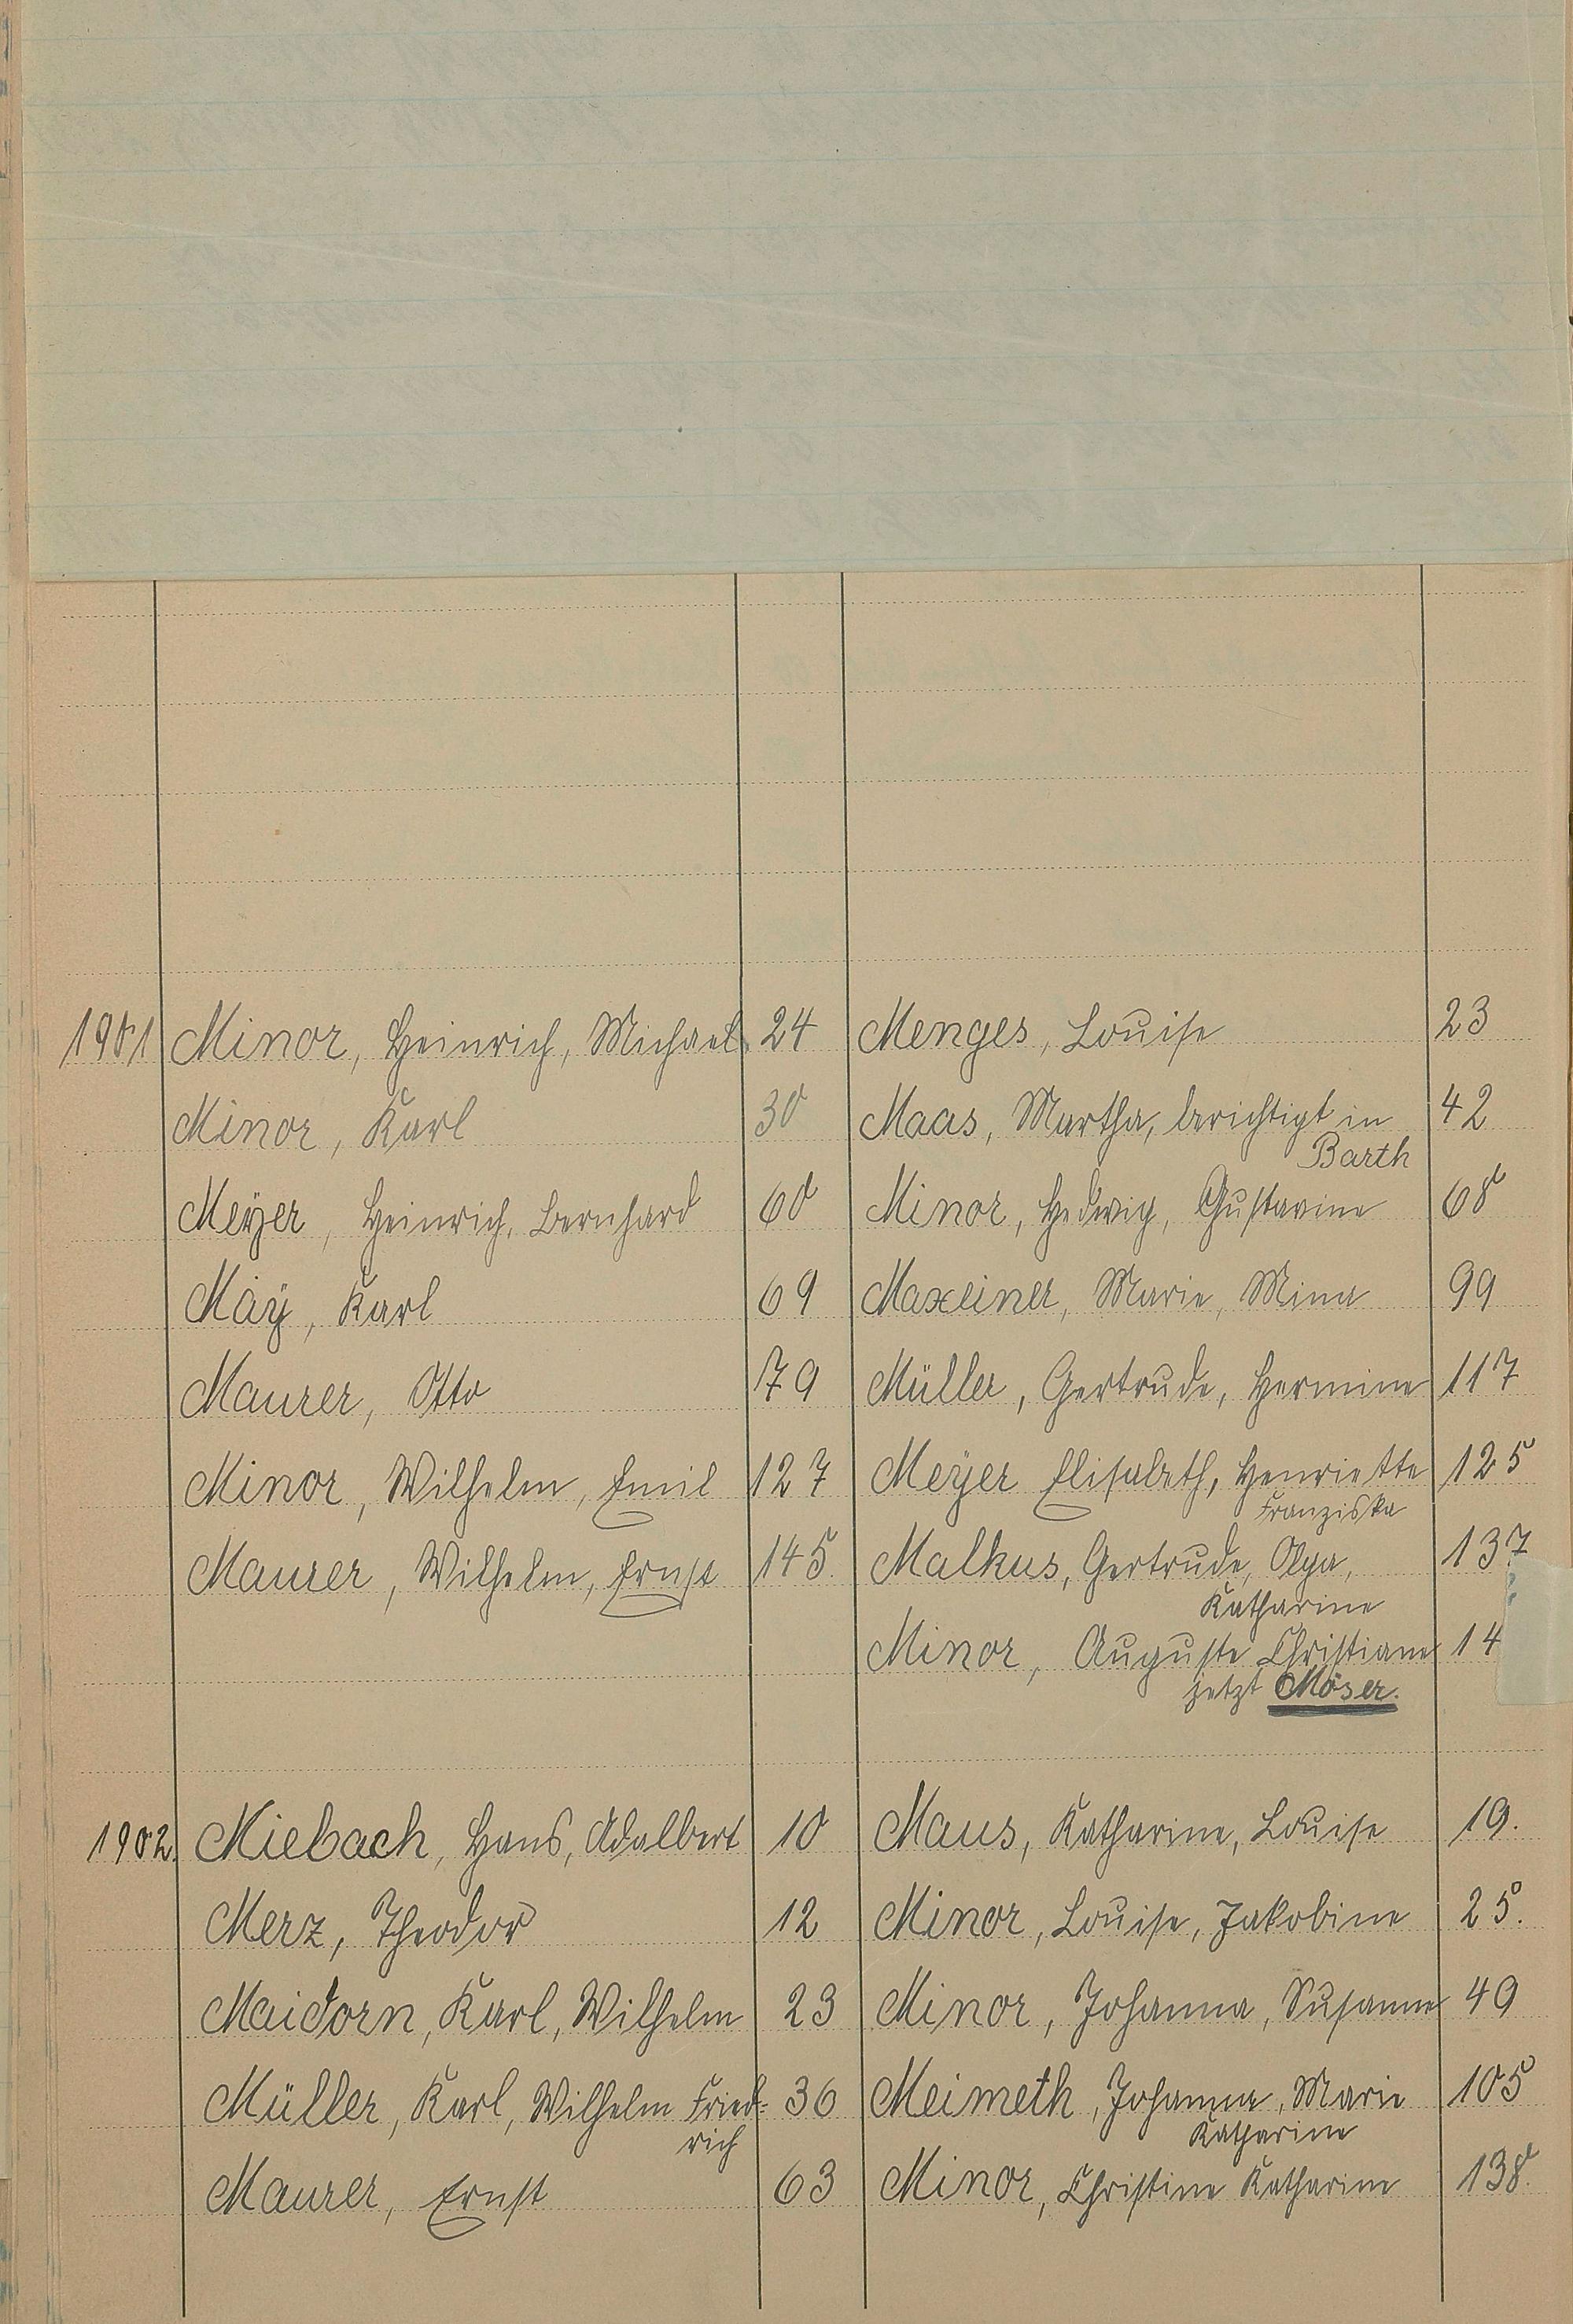 1901 Minor, Heinrich, Michael. 24 Menges, Louise 23
Minor, Karl 30 Maas, Martha, berichtigt in 42
Barth
Meÿer, Heinrich, Bernhard 60 Minor, Hedwig, Gustavine 68
Maÿ, Karl 69 Maxeiner, Marie, Mina 99
Maurer, Otto 79 Müller, Gertrude, Hermine 117
Minor, Wilhelm, Emil 127 Meÿer Elisabeth, Henriette 125
Franziska
Maurer, Wilhelm, Ernst 145. Malkus, Gertrude, Olga, 137
Katharine
Minor, Auguste Christiane 14
jetzt Möser.
1902. Miebach, Hans, Adalbert 10 Maus, Katharine, Louise 19.
Merz, Theodor 12 Minor, Louise, Jakobine 25.
Maidorn, Karl, Wilhelm 23 Minor, Johanna, Susanne 49
Müller, Karl, Wilhelm Fried- 36 Meimeth, Johanna, Marie 105
rich Katharine
Maurer, Ernst 63 Minor, Christine Katharine 138.